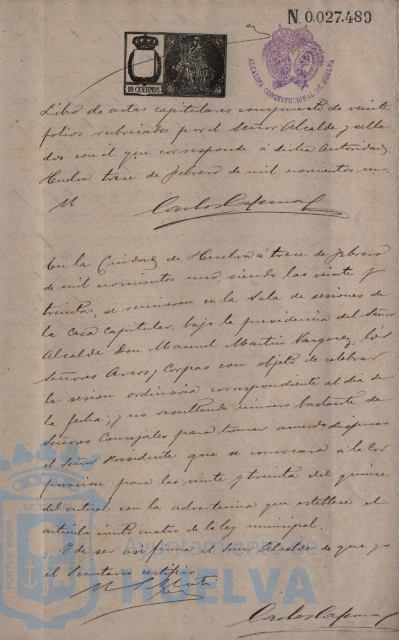 N 0.027.489
10 CENTIMOS
ALCALDIA CONSTITUCIONAL DE HUELVA
Libro de actas capitulares compuesto de veinte
folios rubricados por el Señor Alcalde, y sella
dos con el que corresponde á dicha Autoridad.
Huelva trece de febrero de mil novecientos uno.
En la Ciudad de Huelva á trece de febrero
de mil novecientos uno, siendo las veinte y
treinta, se reunieron en la Sala de sesiones de
la Casa Capitular, bajo la presidencia del Señor
Alcalde Don Manuel Martin Vazquez, los
Señores Arcos y Corpas con objeto de celebrar
la sesion ordinaria correspondiente al dia de
la fecha; y no resultando número bastante de
Señores Concejales para tomar acuerdo dispuso
el Señor Presidente que se convocara á la Cor
poracion para las veinte y treinta del quince
del actual con la advertencia que establece el
articulo ciento cuatro de la ley municipal.
Y de ser asi firma el Señor Alcalde de que yo
el Secretario certifico.
Ayuntamiento de
HUELVA